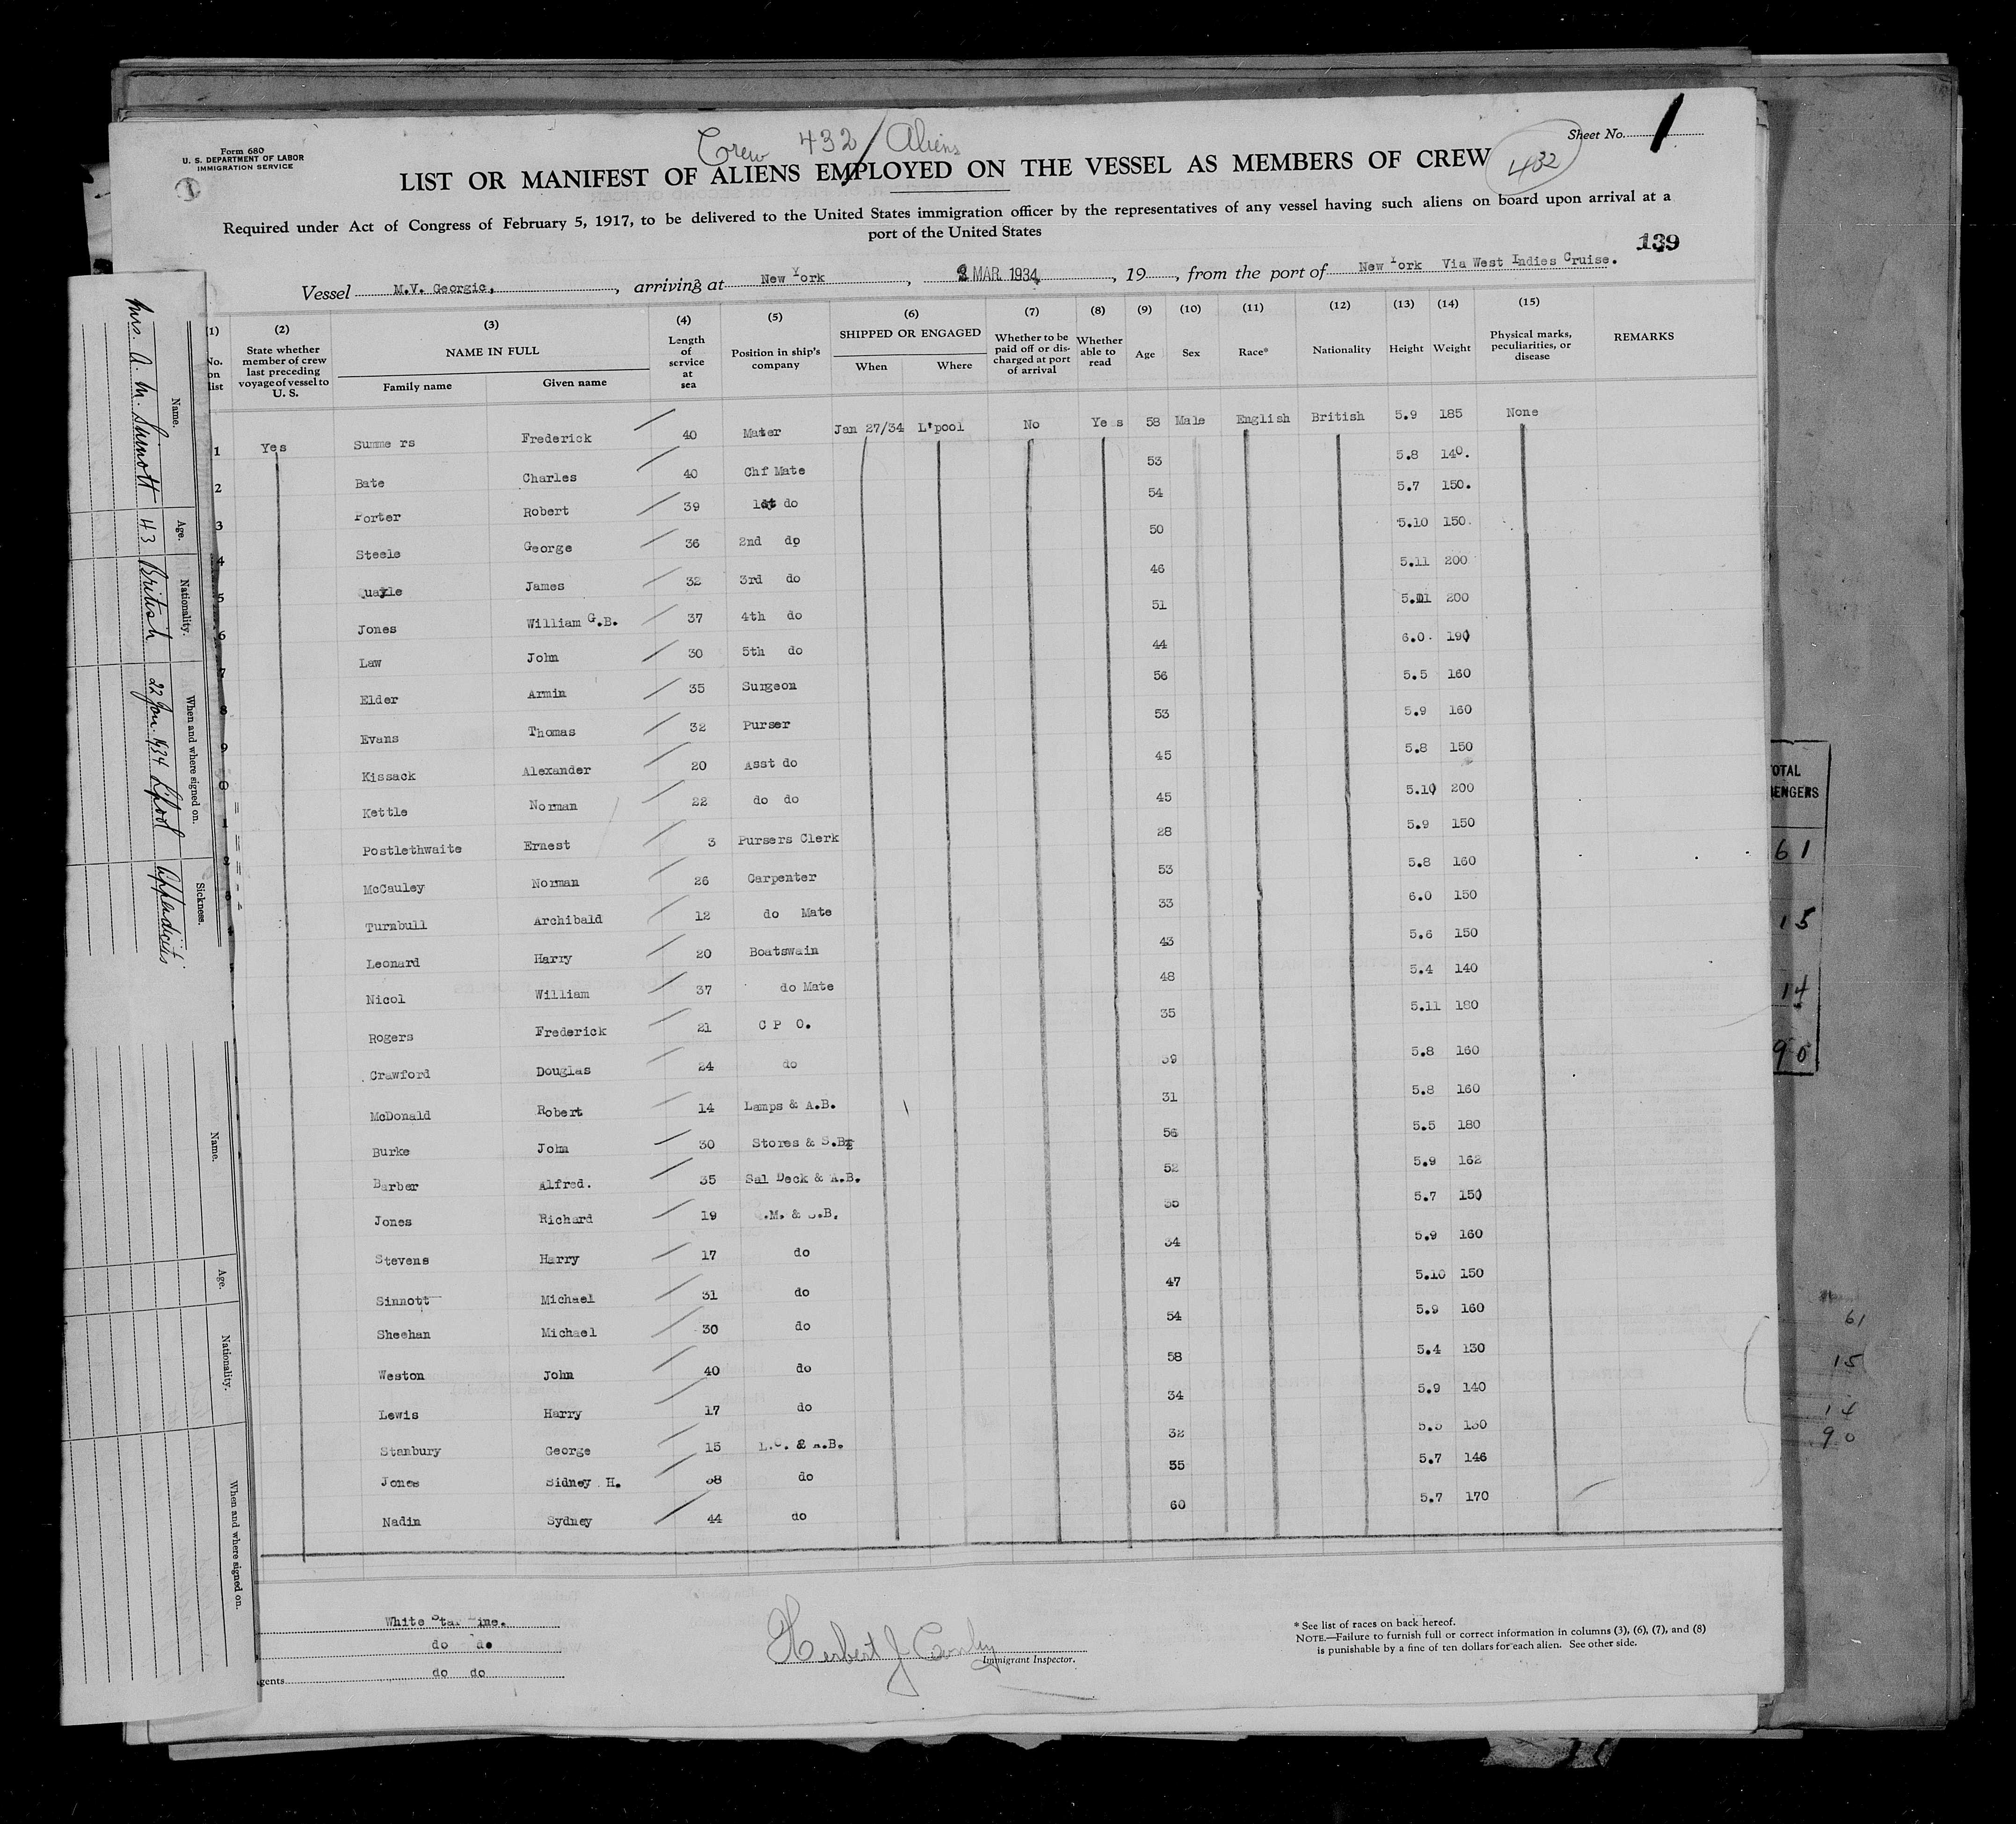 Crew 432 / Aliens
Form 680
U. S. DEPARTMENT OF LABOR
IMMIGRATION SERVICE
Sheet No. 1
432
LIST OR MANIFEST OF ALIENS EMPLOYED ON THE VESSEL AS MEMBERS OF CREW
Required under Act of Congress of February 5, 1917, to be delivered to the United States immigration officer by the representatives of any vessel having such aliens on board upon arrival at a
port of the United States
139
Vessel M.V. Georgic, , arriving at New York , 2 MAR 1934 , 19 , from the port of New York Via West Indies Cruise.
(1) (2) (3) (4) (5) (6) (7) (8) (9) (10) (11) (12) (13) (14) (15)
No. on list State whether member of crew last preceding voyage of vessel to U. S. NAME IN FULL Family name Given name Length of service at sea Position in ship's company SHIPPED OR ENGAGED When Where Whether to be paid off or discharged at port of arrival Whether able to read Age Sex Race* Nationality Height Weight Physical marks, peculiarities, or disease REMARKS
1 Yes Summe rs Frederick 40 Mater Jan 27/34 L'pool No Yes 58 Male English British 5.9 185 None
2 Bate Charles 40 Chf Mate 53 5.8 140.
3 Porter Robert 39 1st do 54 5.7 150.
4 Steele George 36 2nd do 50 5.10 150.
5 Quayle James 32 3rd do 46 5.11 200
6 Jones William G.B. 37 4th do 51 5.11 200
7 Law John 30 5th do 44 6.0. 190
8 Elder Armin 35 Surgeon 56 5.5 160
9 Evans Thomas 32 Purser 53 5.9 160
Kissack Alexander 20 Asst do 45 5.8 150
Kettle Norman 22 do do 45 5.10 200
Postlethwaite Ernest 3 Pursers Clerk 28 5.9 150
McCauley Norman 26 Carpenter 53 5.8 160
Turnbull Archibald 12 do Mate 33 6.0 150
Leonard Harry 20 Boatswain 43 5.6 150
Nicol William 37 do Mate 48 5.4 140
Rogers Frederick 21 C P O. 35 5.11 180
Crawford Douglas 24 do 39 5.8 160
McDonald Robert 14 Lamps & A.B. 31 5.8 160
Burke John 30 Stores & S.B. 56 5.5 180
Barber Alfred. 35 Sal Deck & A.B. 52 5.9 162
Jones Richard 19 .M. & .B. 5.7 150
Stevens Harry 17 do 34 5.9 160
Sinnott Michael 31 do 47 5.10 150
Sheehan Michael 30 do 54 5.9 160
Weston John 40 do 58 5.4 130
Lewis Harry 17 do 34 5.9 140
Stanbury George 15 L.O. & A.B. 32 5.5 130
Jones Sidney H. 38 do 55 5.7 146
Nadin Sydney 44 do 60 5.7 170
White Star Line.
do do
Agents do do
Immigrant Inspector.
* See list of races on back hereof.
NOTE.—Failure to furnish full or correct information in columns (3), (6), (7), and (8)
is punishable by a fine of ten dollars for each alien. See other side.
Name. Age. Nationality. When and where signed on. Sickness.
Mrs. A. M. Sinnott 43 British 22 Jan. 1934 L'pool Appendicitis
Name. Age. Nationality. When and where signed on.
TOTAL
61
15
14
90
61
15
14
90